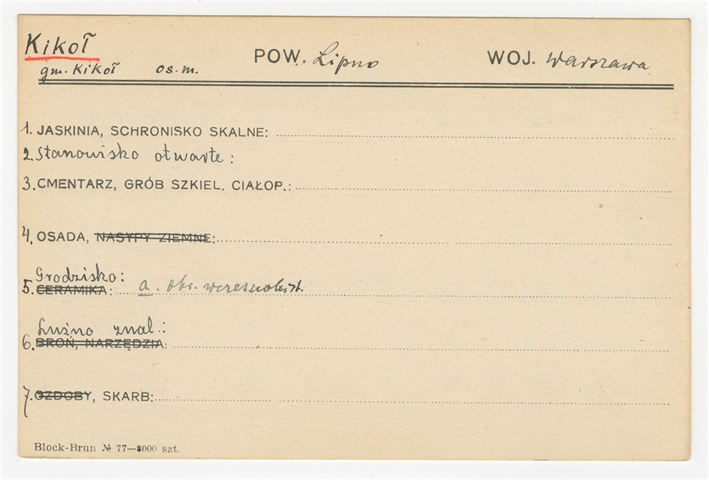 Kikoł POW. Lipno WOJ. Warszawa
gm. Kikoł os. m.
1. JASKINIA, SCHRONISKO SKALNE:
2. Stanowisko otwarte:
3. CMENTARZ, GRÓB SZKIEL. CIAŁOP.:
4. OSADA, NASYPY ZIEMNE:
Grodzisko:
5. CERAMIKA: a. okr. wczesnohist.
Luźno znal.:
6. BROŃ, NARZĘDZIA:
7. OZDOBY, SKARB:
Block-Brun № 77—3000 szt.